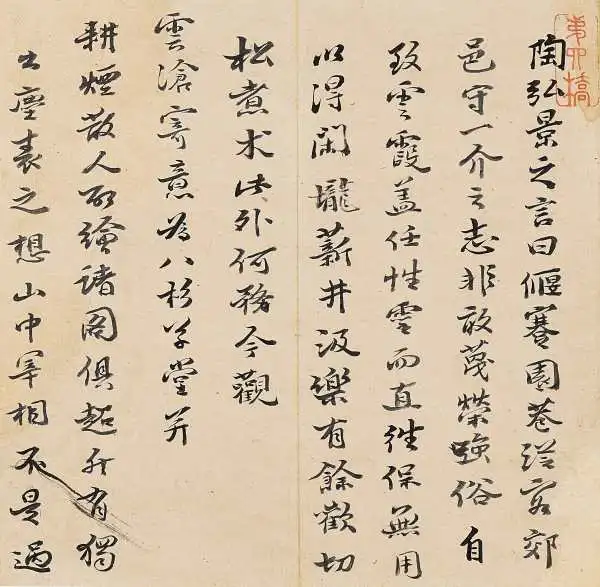 弟四橋
陶弘景之言曰偃蹇園巷從容郊
邑守一介之志非敢蔑榮強俗自
致雲霞蓋任性靈而直往保無用
以得閑壠薪井汲樂有餘歡切
松煮术此外何務今觀
雲滄寄意為八杉草堂并
耕煙散人所繪諸圖俱超然有獨
出塵表之想山中宰相不是過